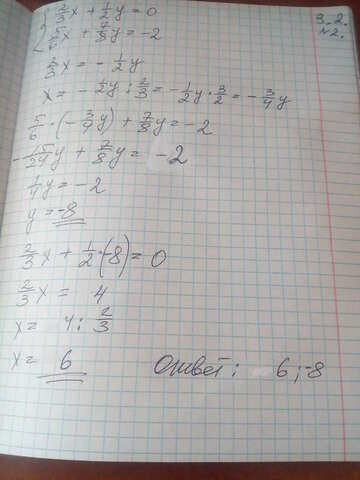 2/3x + 1/2y = 0
3.2.
5/6x + 7/8y = -2
№2.
2/3x = - 1/2y
x = - 1/2y : 2/3 = - 1/2y · 3/2 = - 3/4y
5/6 · (- 3/4y) + 7/8y = -2
- 15/24y + 7/8y = -2
1/4y = -2
y = -8
2/3x + 1/2 · (-8) = 0
2/3x = 4
x = 4 : 2/3
x = 6
Ответ: 6; -8